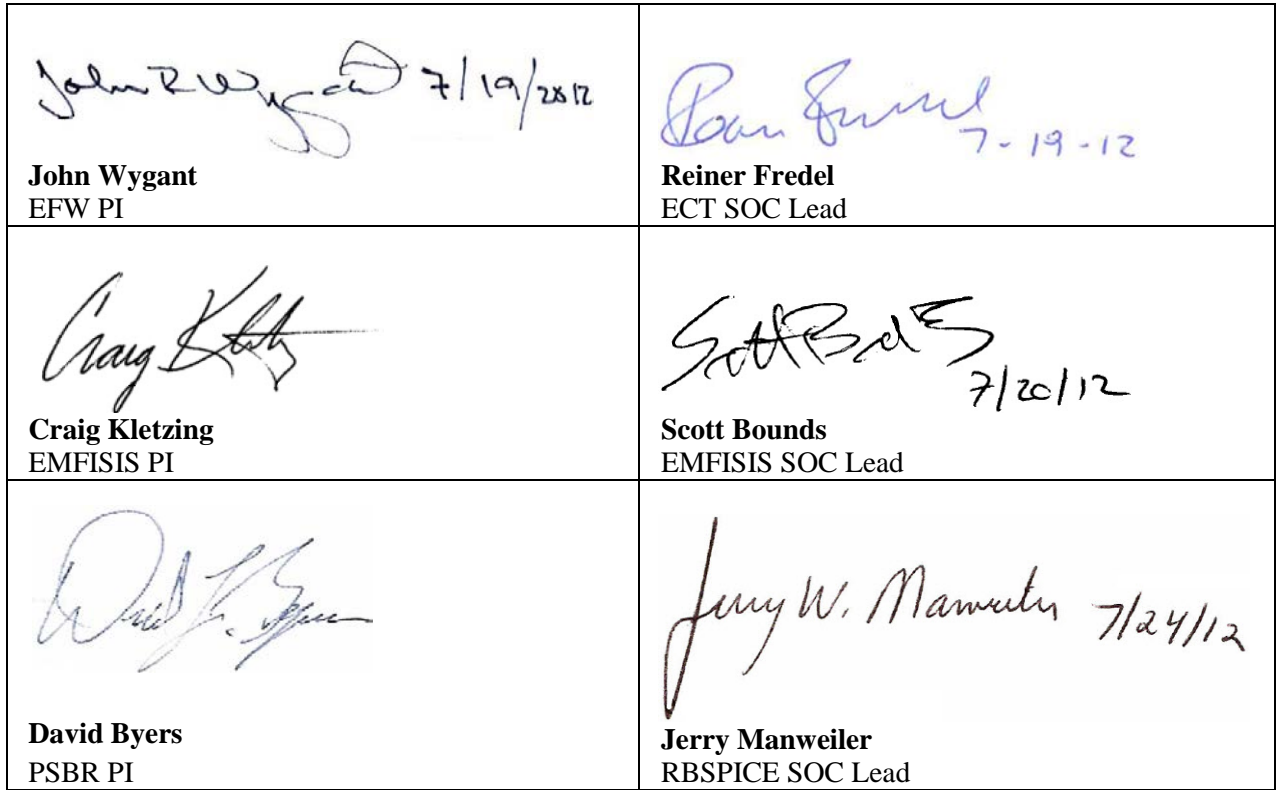 John R Wygant 7/19/2012
John Wygant
EFW PI
7-19-12
Reiner Fredel
ECT SOC Lead
Craig Kletzing
EMFISIS PI
Scott Bounds
7/20/12
Scott Bounds
EMFISIS SOC Lead
David Byers
PSBR PI
Jerry W. Manweiler 7/24/12
Jerry Manweiler
RBSPICE SOC Lead